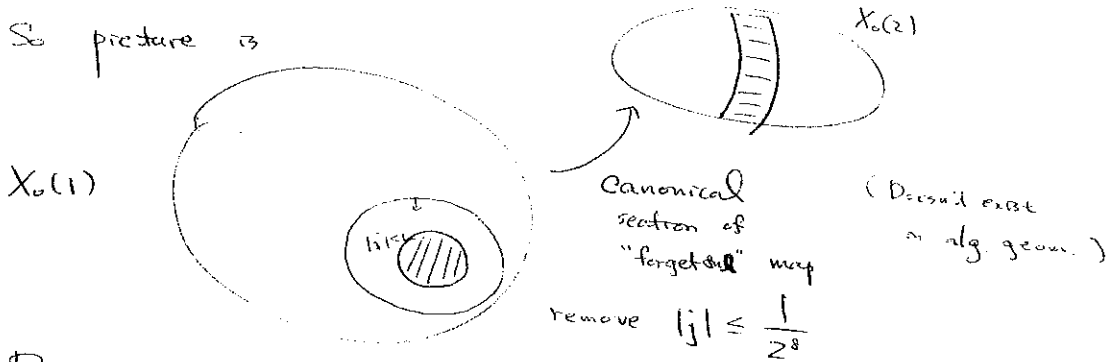 So picture is
X₀(2)
X₀(1)
|j|<1
canonical
section of
"forgetful" map
(Doesn't exist
in alg. geom.)
remove |j| ≤ 1/2⁸